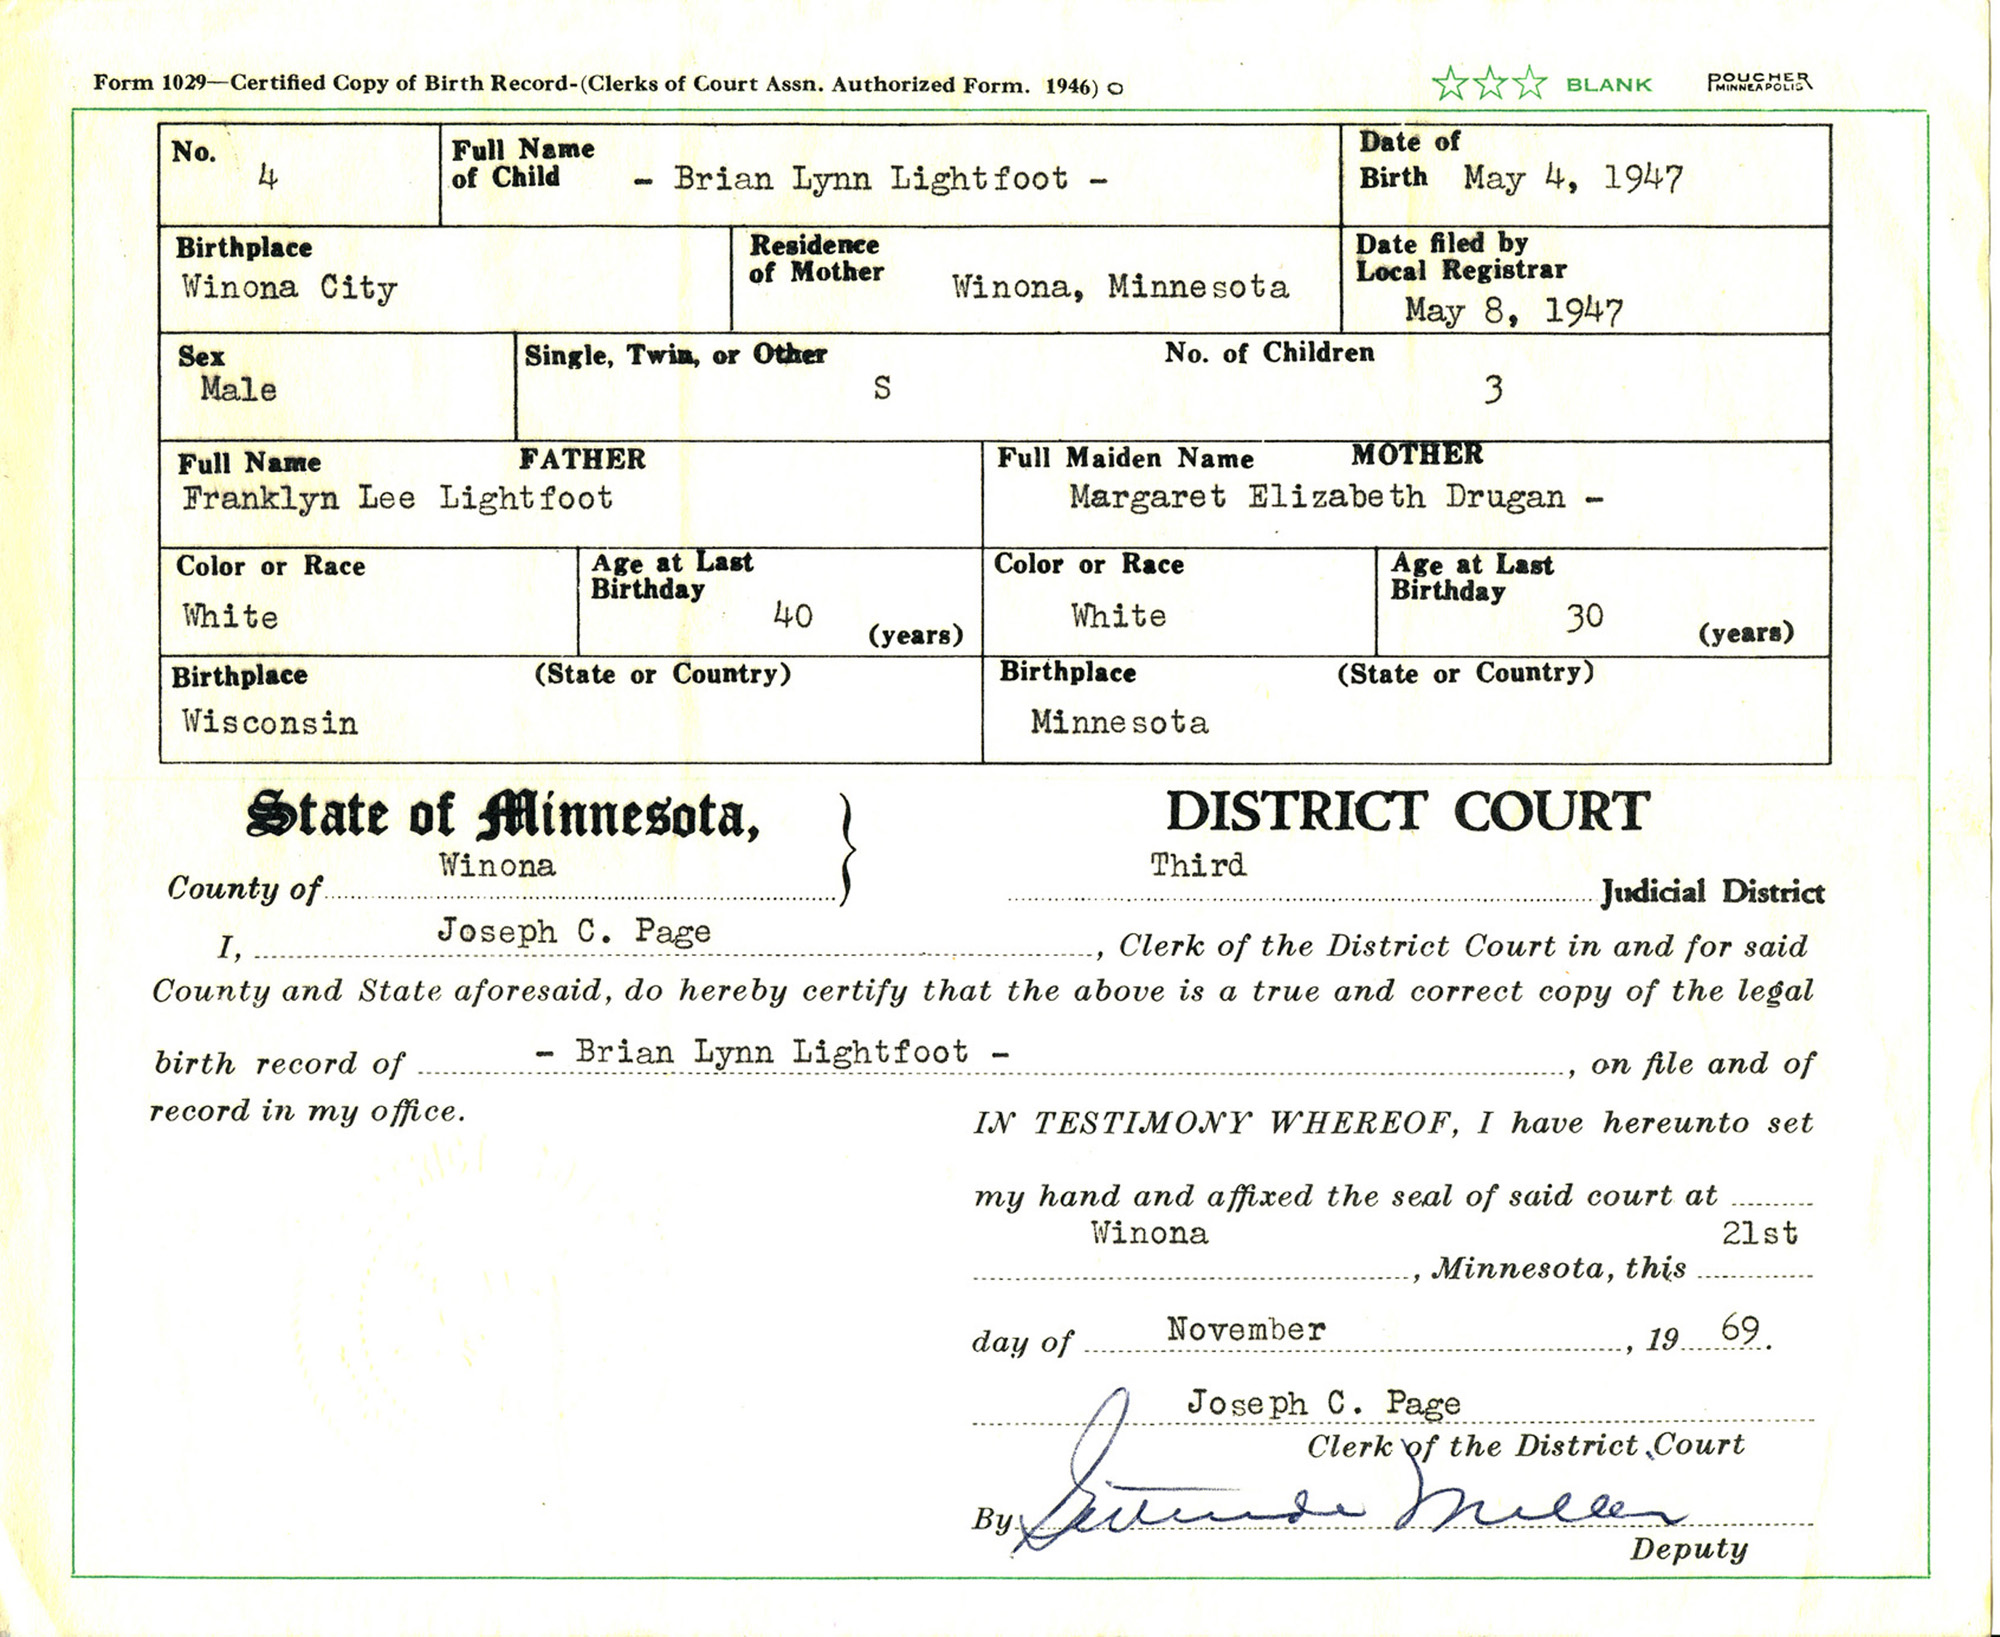 Form 1029—Certified Copy of Birth Record-(Clerks of Court Assn. Authorized Form. 1946) O
☆☆☆ BLANK
POUCHER
MINNEAPOLIS
No.
4
Full Name
of Child - Brian Lynn Lightfoot -
Date of
Birth May 4, 1947
Birthplace
Winona City
Residence
of Mother Winona, Minnesota
Date filed by
Local Registrar
May 8, 1947
Sex
Male
Single, Twin, or Other
S
No. of Children
3
Full Name FATHER
Franklyn Lee Lightfoot
Full Maiden Name MOTHER
Margaret Elizabeth Drugan -
Color or Race
White
Age at Last
Birthday
40 (years)
Color or Race
White
Age at Last
Birthday
30 (years)
Birthplace (State or Country)
Wisconsin
Birthplace (State or Country)
Minnesota
State of Minnesota,
County of Winona
DISTRICT COURT
Third Judicial District
I, Joseph C. Page, Clerk of the District Court in and for said
County and State aforesaid, do hereby certify that the above is a true and correct copy of the legal
birth record of - Brian Lynn Lightfoot -, on file and of
record in my office.
IN TESTIMONY WHEREOF, I have hereunto set
my hand and affixed the seal of said court at
Winona, Minnesota, this 21st
day of November, 19 69.
Joseph C. Page
Clerk of the District Court
By Gertrude Miller
Deputy